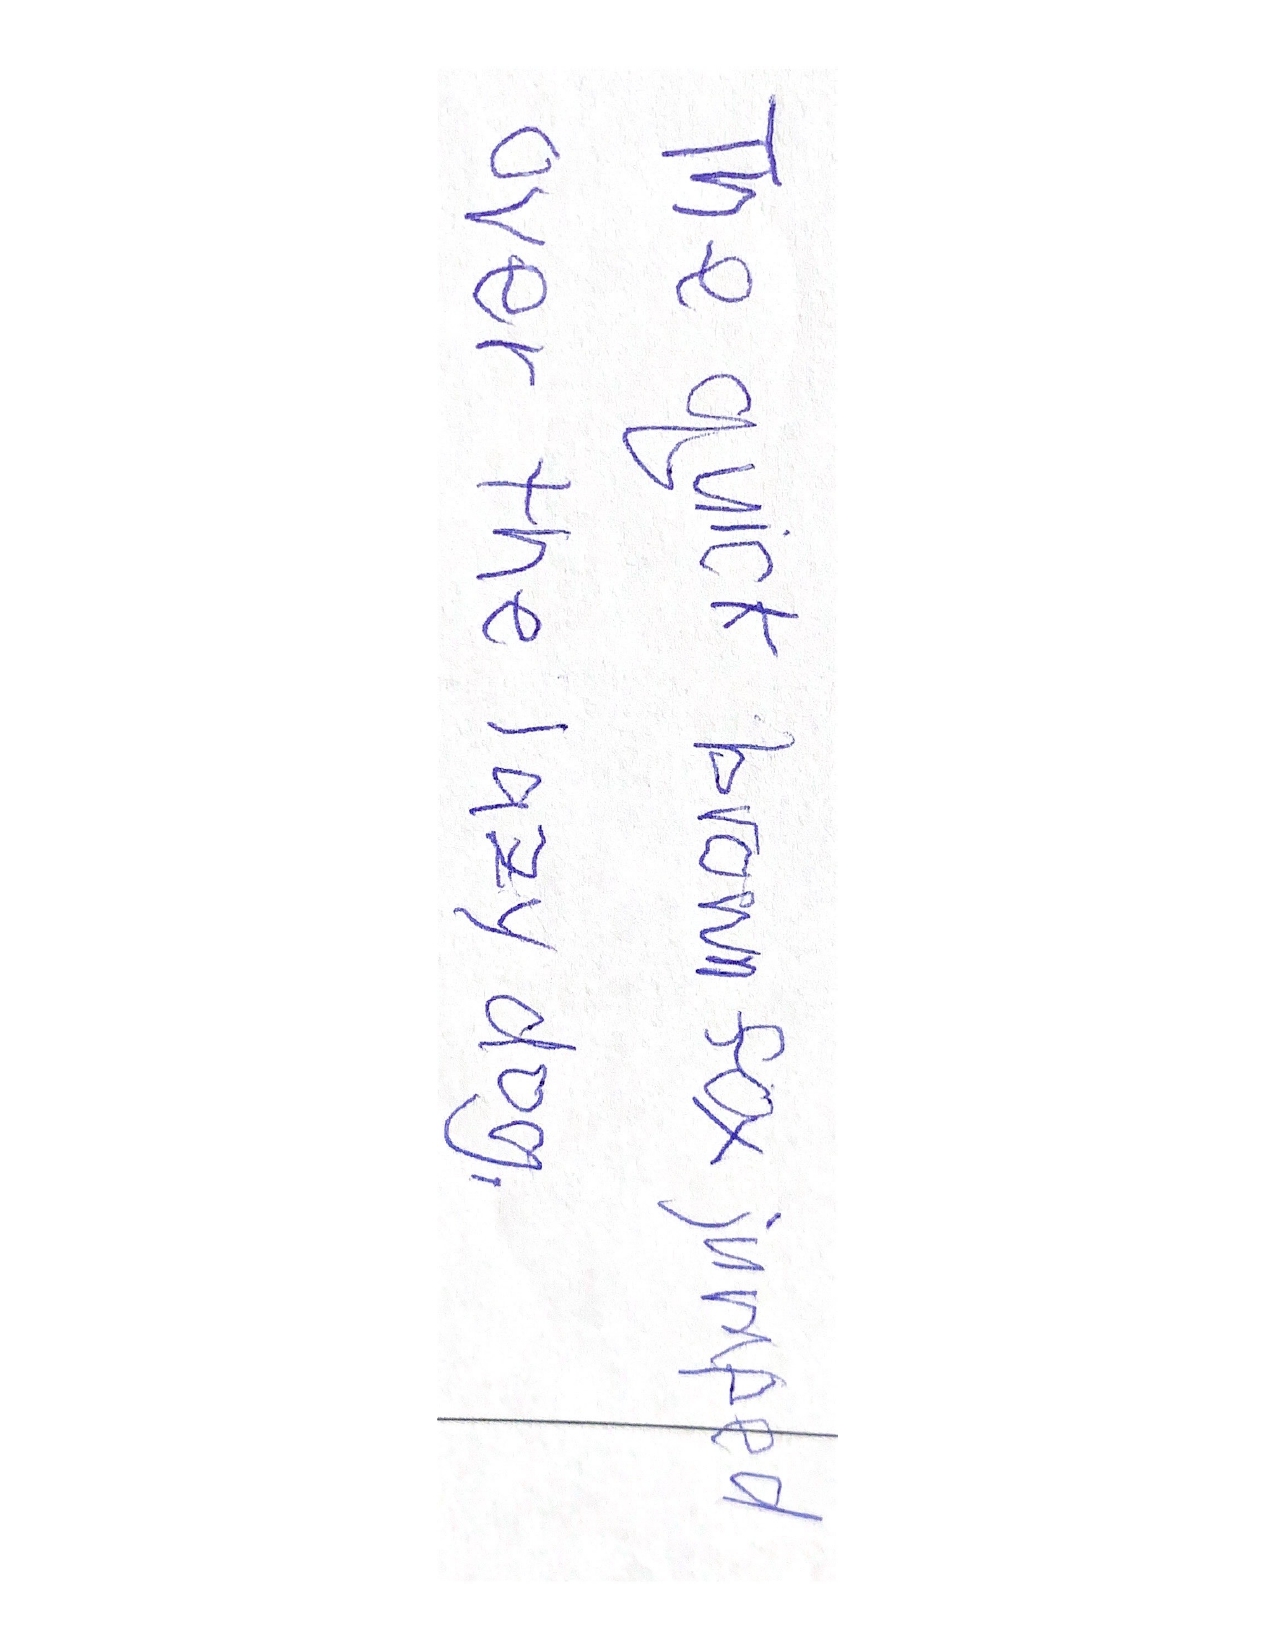 The quick brown fox jumped
over the lazy dog.